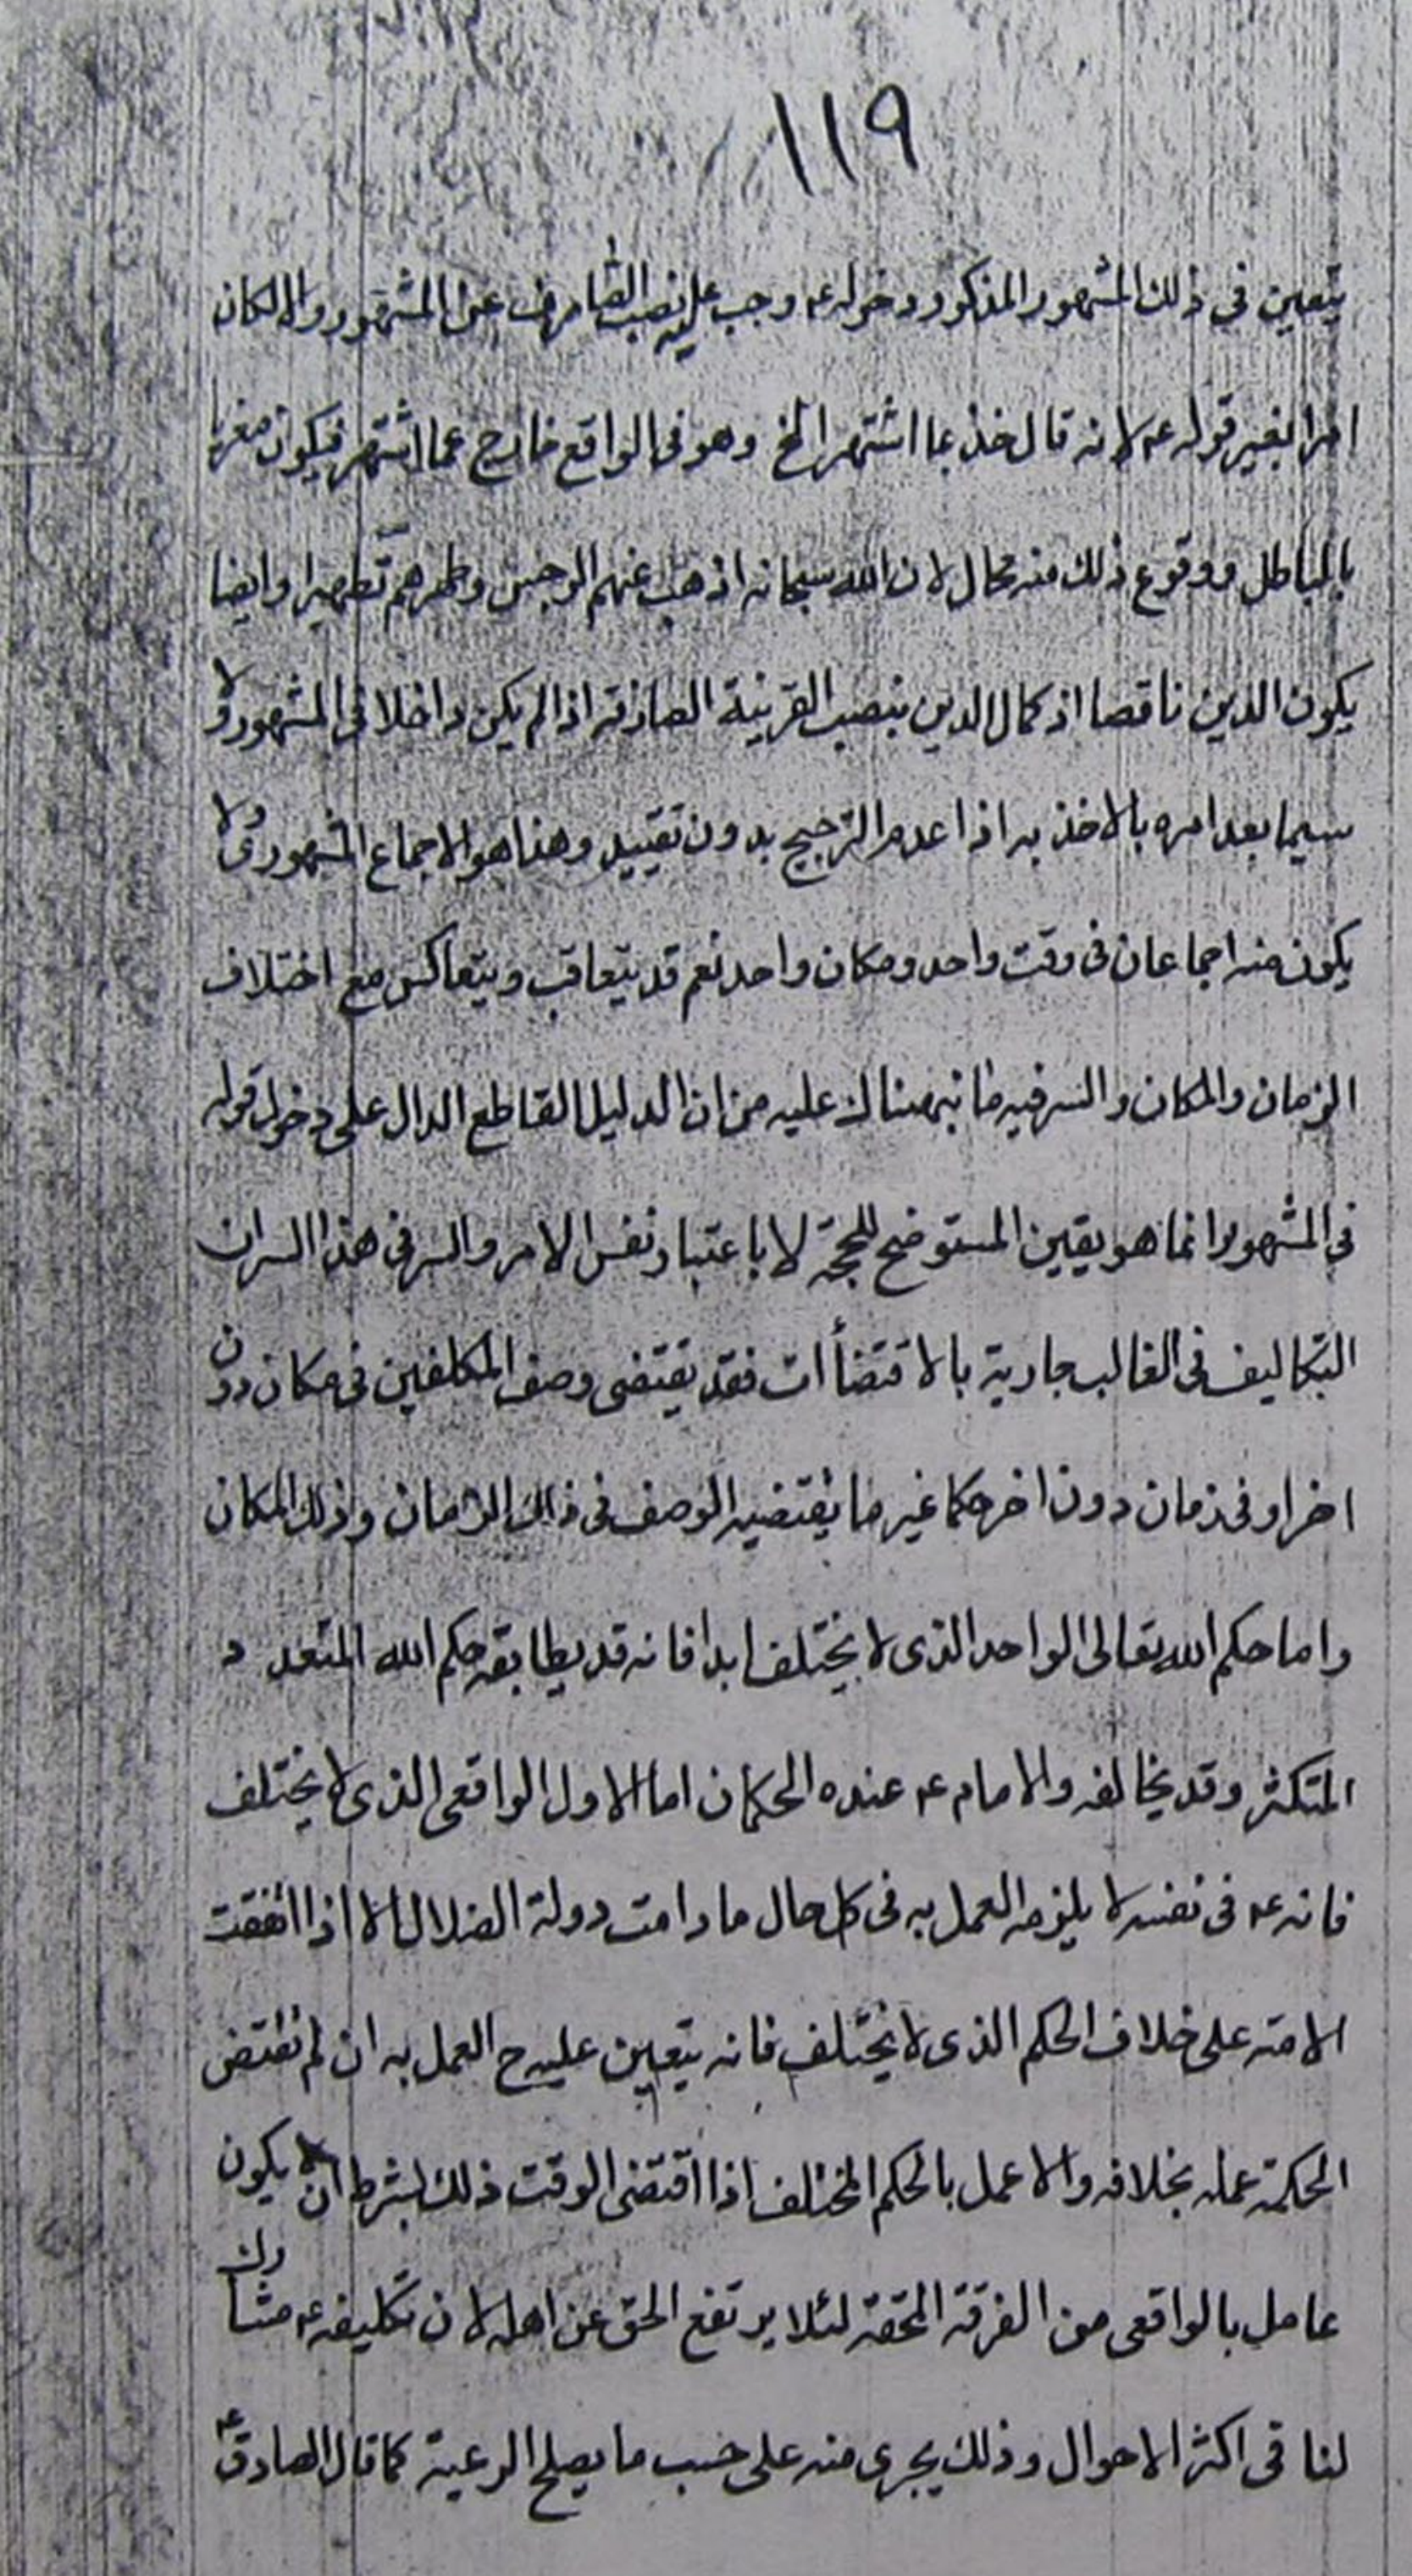 ١١٩
يتعين في ذلك المشهور المذكور دخوله ع وجب عليه نصب الصارف عن المشهور والا لكان
امرا بغير قوله ع لانه قال خذ بما اشتهر الخ وهو في الواقع خارج عما اشتهر فيكون مغريا
بالباطل ووقوع ذلك منه محال لان الله سبحانه اذهب عنهم الرجس وطهرهم تطهيرا وايضا
يكون الدين ناقصا اذ كمال الدين بنصب القرينة الصارفة اذا لم يكن داخلا في المشهور ولا
سيما بعد امره بالاخذ به اذا عدم الترجيح بدون تقييد وهذا هو الاجماع المشهوري ولا
يكون منه اجماعان في وقت واحد ومكان واحد نعم قد يتعاقب ويتعاكس مع اختلاف
الزمان والمكان والسر فيه ما نبهناك عليه من ان الدليل القاطع الدال على دخول قوله
في المشهور انما هو يقين المستوضح للحجة لا باعتبار نفس الامر والسر في هذا السر ان
التكاليف في الغالب جارية بالاقتضاأت فقد يقتضى وصف المكلفين في مكان دون
اخر او في زمان دون اخر حكما غير ما يقتضيه الوصف في ذلك الزمان وذلك المكان
واما حكم الله تعالى الواحد الذى لا يختلف ابدا فانه قد يطابقه حكم الله المتعدد
المتكثر وقد يخالفه والامام ع عنده الحكمان اما الاول الواقعى الذى لا يختلف
فانه ع في نفسه لا يلزمه العمل به في كل حال ما دامت دولة الضلال الا اذا اتفقت
الامة على خلاف الحكم الذى لا يختلف فانه يتعين عليه ح العمل به ان لم تقتض
الحكمة عمله بخلافه والا عمل بالحكم المختلف اذا اقتضى الوقت ذلك بشرط ان لا يكون
عامل بالواقعى من الفرقة المحقة لئلا يرتفع الحق عن اهله لان تكليفه ع مشارك
لنا في اكثر الاحوال وذلك يجرى منه على حسب ما يصلح الرعية كما قال الصادق ع